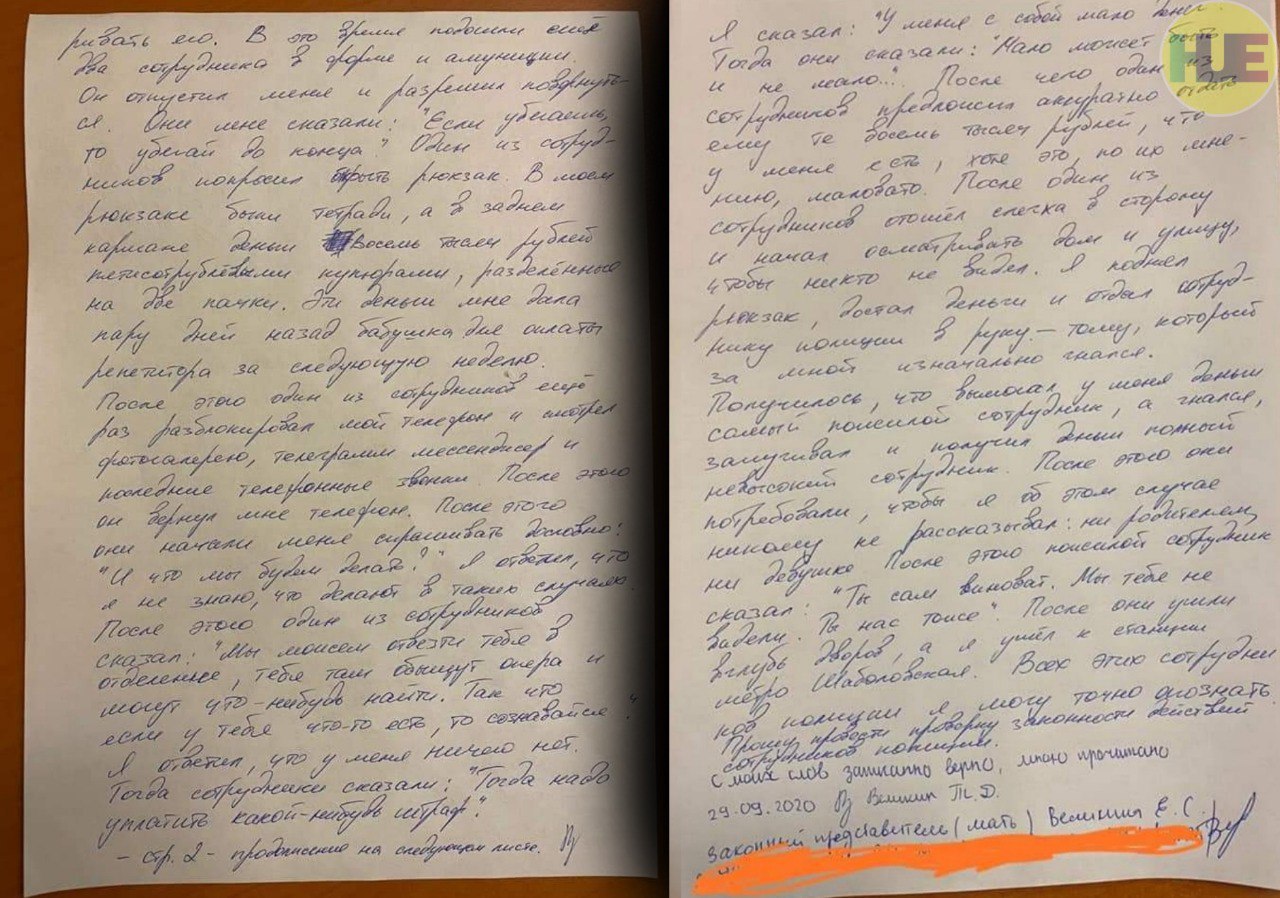 ривать его. В это время подошли ещё
два сотрудника в форме и амуниции.
Он отпустил меня и разрешил повернуть-
ся. Они мне сказали: "Если убегаешь,
то убегай до конца." Один из сотруд-
ников попросил открыть рюкзак. В моём
рюкзаке были тетради, а в заднем
кармане деньги Восемь тысяч рублей
пятисотрублёвыми купюрами, разделённые
на две пачки. Эти деньги мне дала
пару дней назад бабушка для оплаты
репетитора за следующую неделю.
После этого один из сотрудников ещё
раз разблокировал мой телефон и смотрел
фотогалерею, телеграмм мессенджер и
последние телефонные звонки. После этого
он вернул мне телефон. После этого
они начали меня спрашивать дословно:
"И что мы будем делать?" Я ответил, что
я не знаю, что делают в таких случаях.
После этого один из сотрудников
сказал: "Мы можем отвезти тебя в
отделение, тебя там обыщут опера и
могут что-нибудь найти. Так что
если у тебя что-то есть, то сознавайся".
Я ответил, что у меня ничего нет.
Тогда сотрудники сказали: "Тогда надо
уплатить какой-нибудь штраф".
- стр. 2 - продолжение на следующем листе.
Я сказал: "У меня с собой мало денег.
Тогда они сказали: "Мало может быть
и не мало...". После чего один из
сотрудников предложил аккуратно отдать
ему те восемь тысяч рублей, что
у меня есть, хотя это, по их мне-
нию, маловато. После один из
сотрудников отошёл слегка в сторону
и начал осматривать дом и улицу,
чтобы никто не видел. Я поднял
рюкзак, достал деньги и отдал сотруд-
нику полиции в руку - тому, который
за мной изначально гнался.
Получилось, что вымогал у меня деньги
самый пожилой сотрудник, а гнался,
запугивал и получил деньги полный
невысокий сотрудник. После этого они
потребовали, чтобы я об этом случае
никому не рассказывал: ни родителям,
ни девушке После этого пожилой сотрудник
сказал: "Ты сам виноват. Мы тебя не
видели. Ты нас тоже". После они ушли
вглубь дворов, а я ушёл к станции
метро Шаболовская. Всех этих сотрудни
ков полиции я могу точно опознать.
Прошу провести проверку законности действий
сотрудников полиции.
С моих слов записанно верно, мною прочитано
29.09.2020 Т.Д.
Законный представитель (мать) Е.С.
HJE